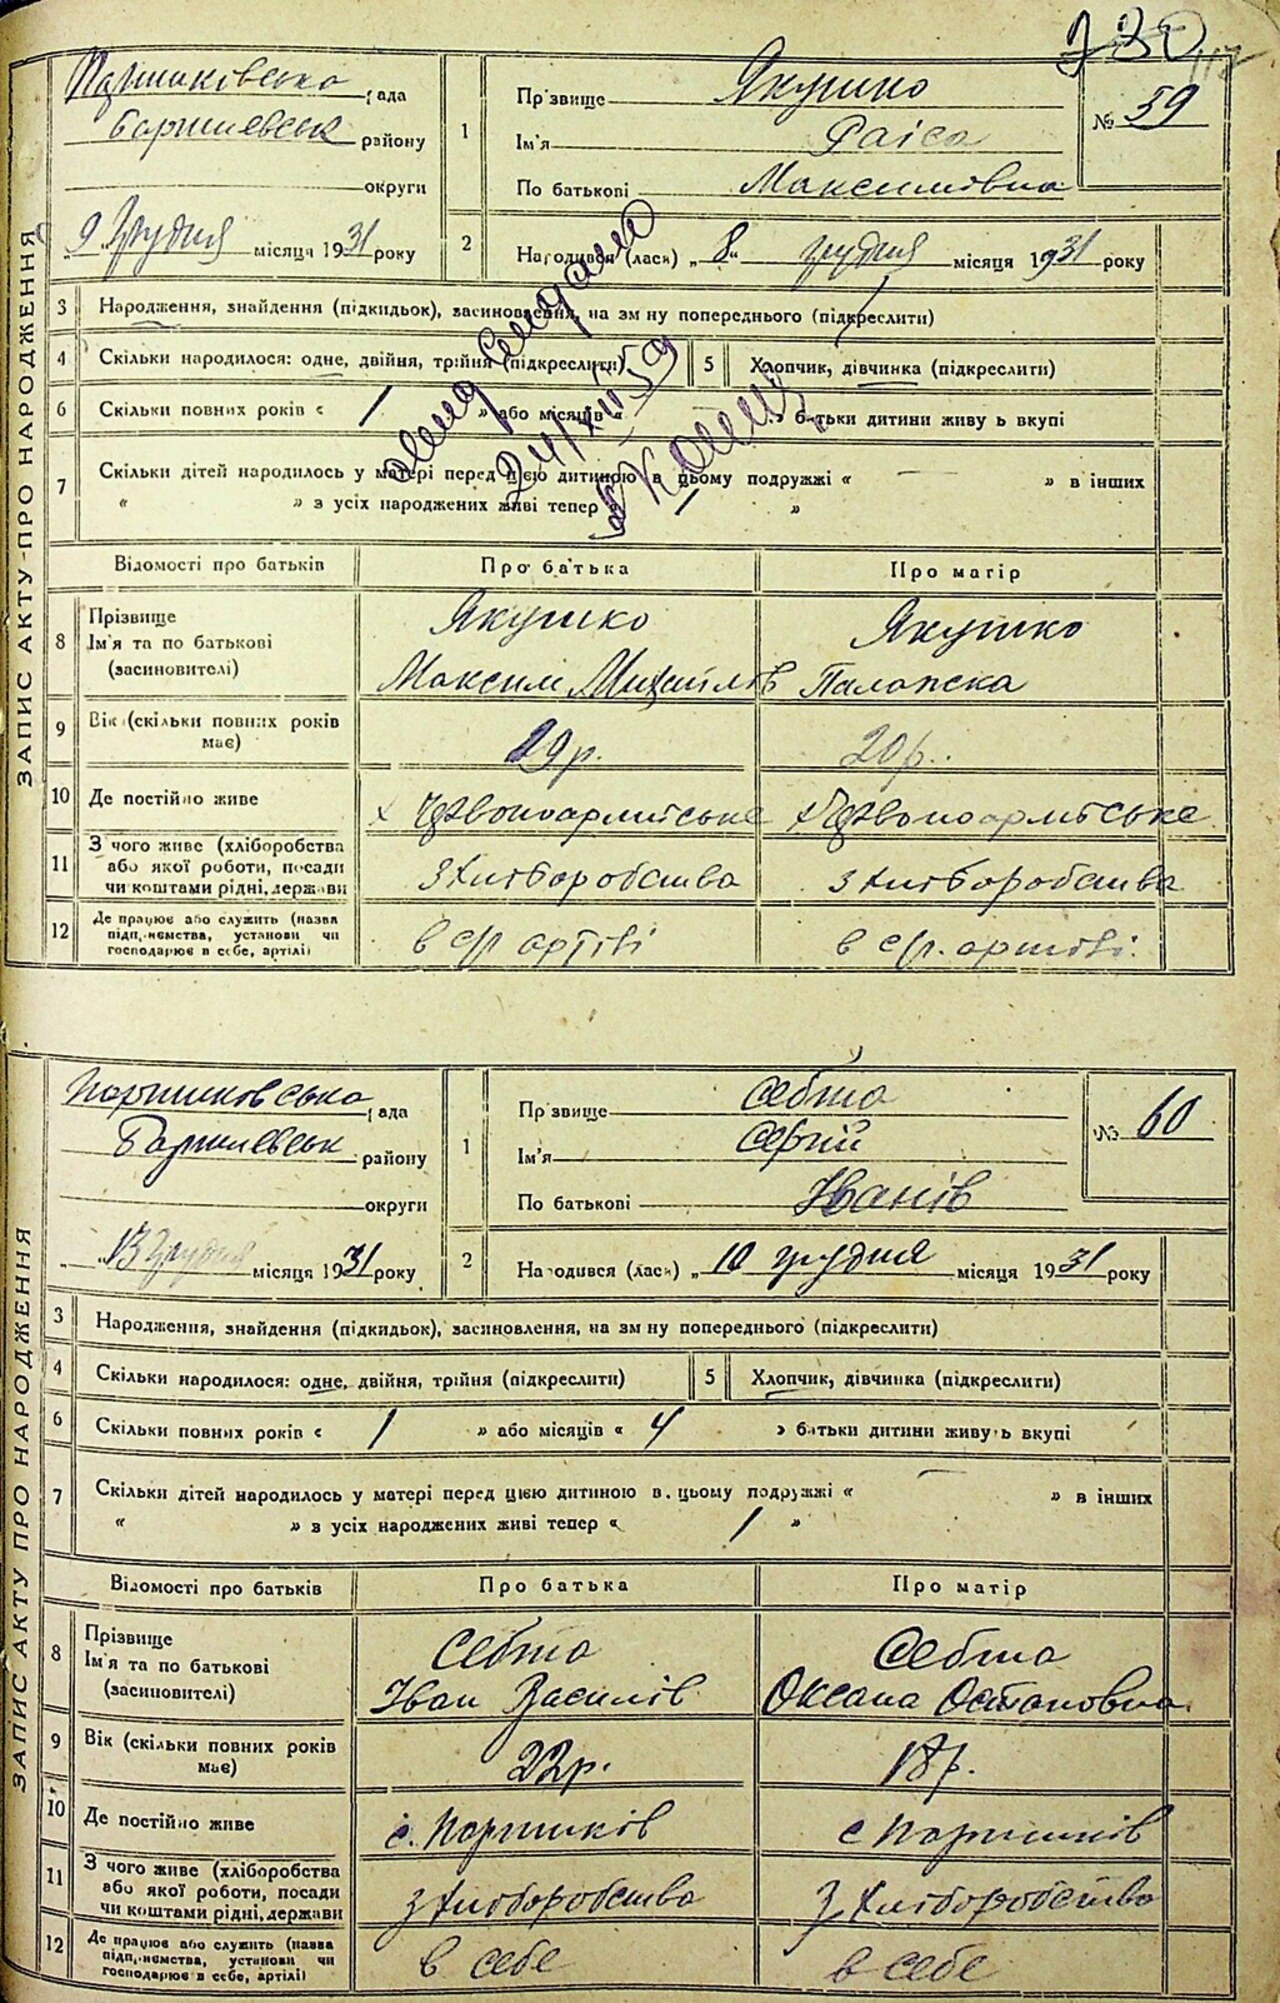 730
117
ЗАПИС АКТУ ПРО НАРОДЖЕННЯ
рада
району
округи
„9 Грудня місяця 1931 року
1
Прізвище Якушко
Ім'я Раіса
По батькові Максимівна
№ 59
2 Народився (лася) „8“ грудня місяця 1931 року
3 Народження, знайдення (підкидьок), засиновлення, на зміну попереднього (підкреслити)
4 Скільки народилося: одне, двійня, трійня (підкреслити) 5 Хлопчик, дівчинка (підкреслити)
6 Скільки повних років « 1 » або місяців « » батьки дитини живуть вкупі
7 Скільки дітей народилось у матері перед цією дитиною в цьому подружжі « — » в інших
« » з усіх народжених живі тепер « 1 »
24/XII 59
Відомості про батьків Про батька Про матір
8 Прізвище Ім'я та по батькові (засиновителі)
Якушко Якушко
Максим Михайлів Палажка
9 Вік (скільки повних років має) 29 р. 20 р.
10 Де постійно живе х Червоноармійське х Червоноармійське
11 З чого живе (хліборобства або якої роботи, посади чи коштами рідні, держави з хліборобства з хліборобства
12 Де працює або служить (назва підприємства, установи чи господарює в себе, артілі) в с/г артілі в с/г. артілі.
ЗАПИС АКТУ ПРО НАРОДЖЕННЯ
рада
району
округи
„13 грудня місяця 1931 року
1
Прізвище Себта
Ім'я Сергій
По батькові Іванів
№ 60
2 Народився (лася) „10 грудня місяця 1931 року
3 Народження, знайдення (підкидьок), засиновлення, на зміну попереднього (підкреслити)
4 Скільки народилося: одне, двійня, трійня (підкреслити) 5 Хлопчик, дівчинка (підкреслити)
6 Скільки повних років « 1 » або місяців « 4 » батьки дитини живуть вкупі
7 Скільки дітей народилось у матері перед цією дитиною в цьому подружжі « — » в інших
« » з усіх народжених живі тепер « 1 »
Відомості про батьків Про батька Про матір
8 Прізвище Ім'я та по батькові (засиновителі)
Себта Себта
Іван Василів Оксана Остаповна
9 Вік (скільки повних років має) 22 р. 18 р.
10 Де постійно живе с. Паришків с Паришків
11 З чого живе (хліборобства або якої роботи, посади чи коштами рідні, держави з хліборобства З хліборобства
12 Де працює або служить (назва підприємства, установи чи господарює в себе, артілі) в себе в себе